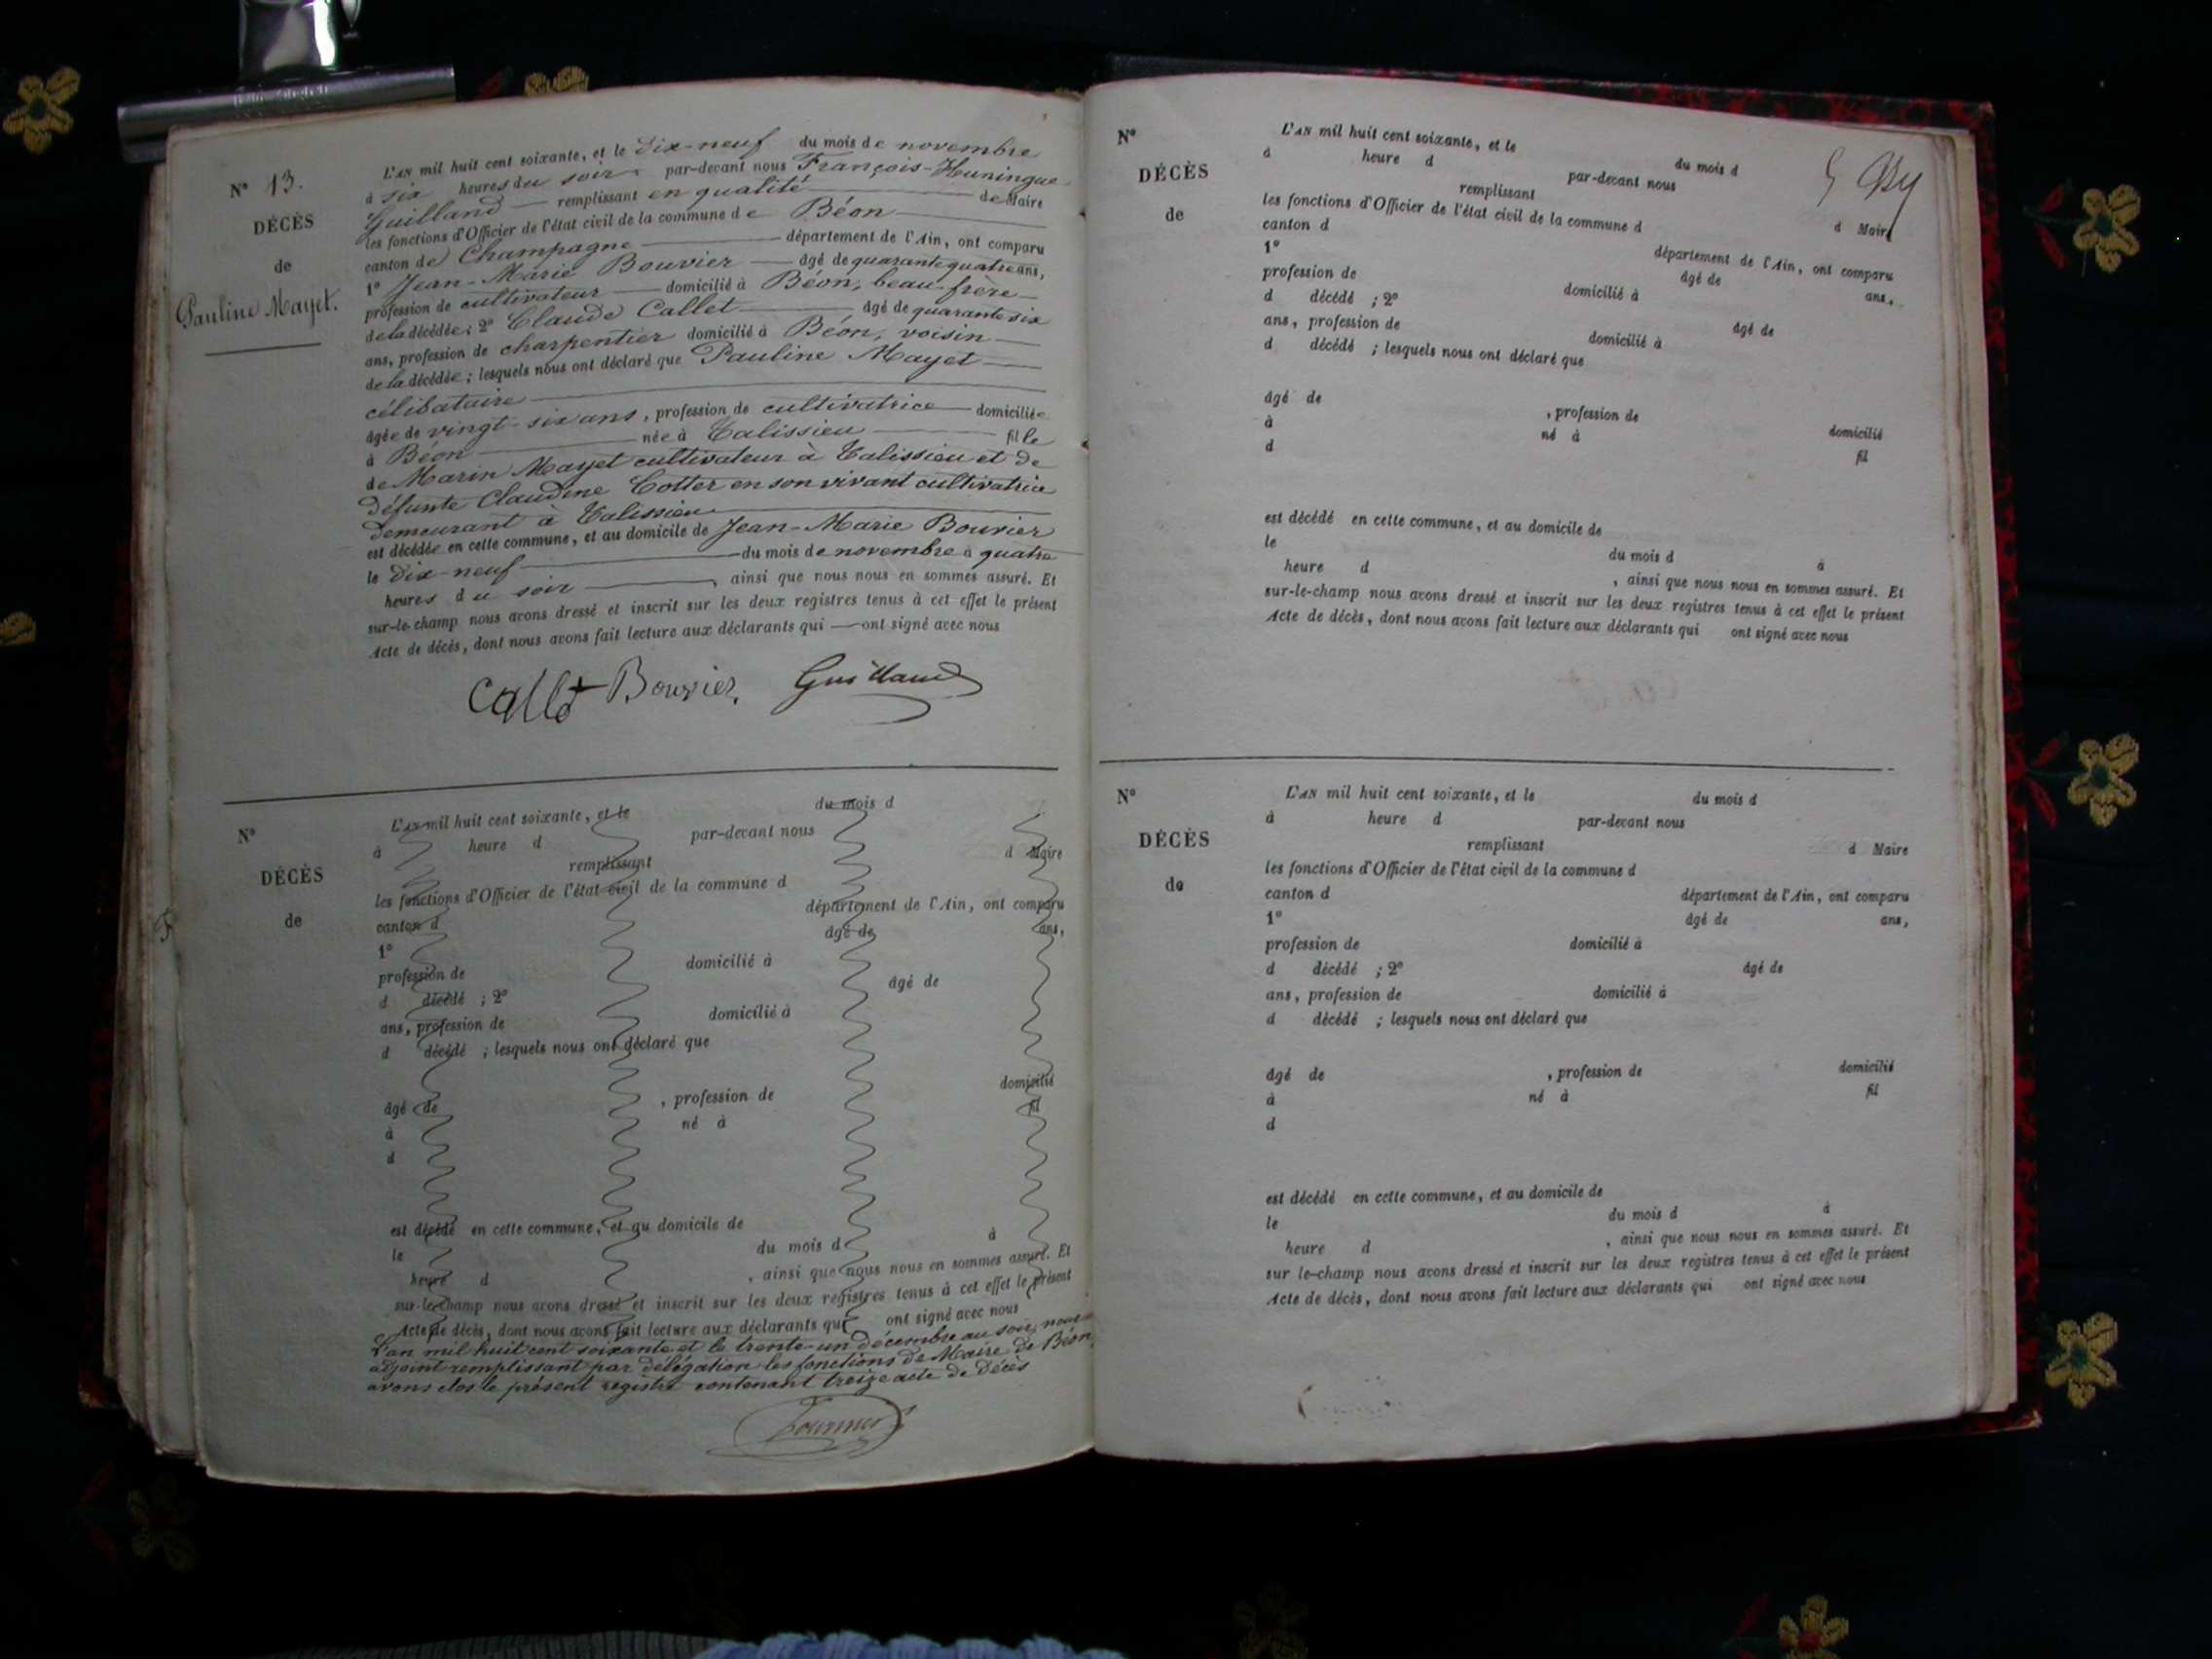 N° 13.
DÉCÈS
de
Pauline Mayet.
L'AN mil huit cent soixante, et le dix-neuf du mois de novembre
à six heures du soir par-devant nous François-Huningue
Guilland remplissant en qualité de Maire
les fonctions d'Officier de l'état civil de la commune de Béon
canton de Champagne département de l'Ain, ont comparu
1° Jean-Marie Bouvier âgé de quarante quatre ans,
profession de cultivateur domicilié à Béon, beau-frère
de la décédée ; 2° Claude Callet âgé de quarante six
ans, profession de charpentier domicilié à Béon, voisin
de la décédée ; lesquels nous ont déclaré que Pauline Mayet
célibataire
âgée de vingt-six ans, profession de cultivatrice domiciliée
à Béon née à Talissieu fille
de Marin Mayet cultivateur à Talissieu et de
défunte Claudine Cotter en son vivant cultivatrice
demeurant à Talissieu
est décédée en cette commune, et au domicile de Jean-Marie Bouvier
le dix-neuf du mois de novembre à quatre
heures du soir, ainsi que nous nous en sommes assuré. Et
sur-le-champ nous avons dressé et inscrit sur les deux registres tenus à cet effet le présent
Acte de décès, dont nous avons fait lecture aux déclarants qui ont signé avec nous
Callet Bouvier, Guilland
N°
DÉCÈS
de
L'AN mil huit cent soixante, et le du mois d
à heure d par-devant nous
remplissant d Maire
les fonctions d'Officier de l'état civil de la commune d
canton d département de l'Ain, ont comparu
1° âgé de ans,
profession de domicilié à
d décédé ; 2° âgé de
ans, profession de domicilié à
d décédé ; lesquels nous ont déclaré que
âgé de , profession de domicilié
à né à fil
d
est décédé en cette commune, et au domicile de
le du mois d à
heure d , ainsi que nous nous en sommes assuré. Et
sur-le-champ nous avons dressé et inscrit sur les deux registres tenus à cet effet le présent
Acte de décès, dont nous avons fait lecture aux déclarants qui ont signé avec nous
L'an mil huit cent soixante et le trente-un décembre au soir, nous
adjoint remplissant par délégation les fonctions de Maire de Béon,
avons clos le présent registre contenant treize acte de décès
N°
DÉCÈS
de
L'AN mil huit cent soixante, et le du mois d
à heure d par-devant nous
remplissant d Maire
les fonctions d'Officier de l'état civil de la commune d
canton d département de l'Ain, ont comparu
1° âgé de ans,
profession de domicilié à
d décédé ; 2° âgé de
ans, profession de domicilié à
d décédé ; lesquels nous ont déclaré que
âgé de , profession de domicilié
à né à fil
d
est décédé en cette commune, et au domicile de
le du mois d à
heure d , ainsi que nous nous en sommes assuré. Et
sur-le-champ nous avons dressé et inscrit sur les deux registres tenus à cet effet le présent
Acte de décès, dont nous avons fait lecture aux déclarants qui ont signé avec nous
N°
DÉCÈS
de
L'AN mil huit cent soixante, et le du mois d
à heure d par-devant nous
remplissant d Maire
les fonctions d'Officier de l'état civil de la commune d
canton d département de l'Ain, ont comparu
1° âgé de ans,
profession de domicilié à
d décédé ; 2° âgé de
ans, profession de domicilié à
d décédé ; lesquels nous ont déclaré que
âgé de , profession de domicilié
à né à fil
d
est décédé en cette commune, et au domicile de
le du mois d à
heure d , ainsi que nous nous en sommes assuré. Et
sur le-champ nous avons dressé et inscrit sur les deux registres tenus à cet effet le présent
Acte de décès, dont nous avons fait lecture aux déclarants qui ont signé avec nous